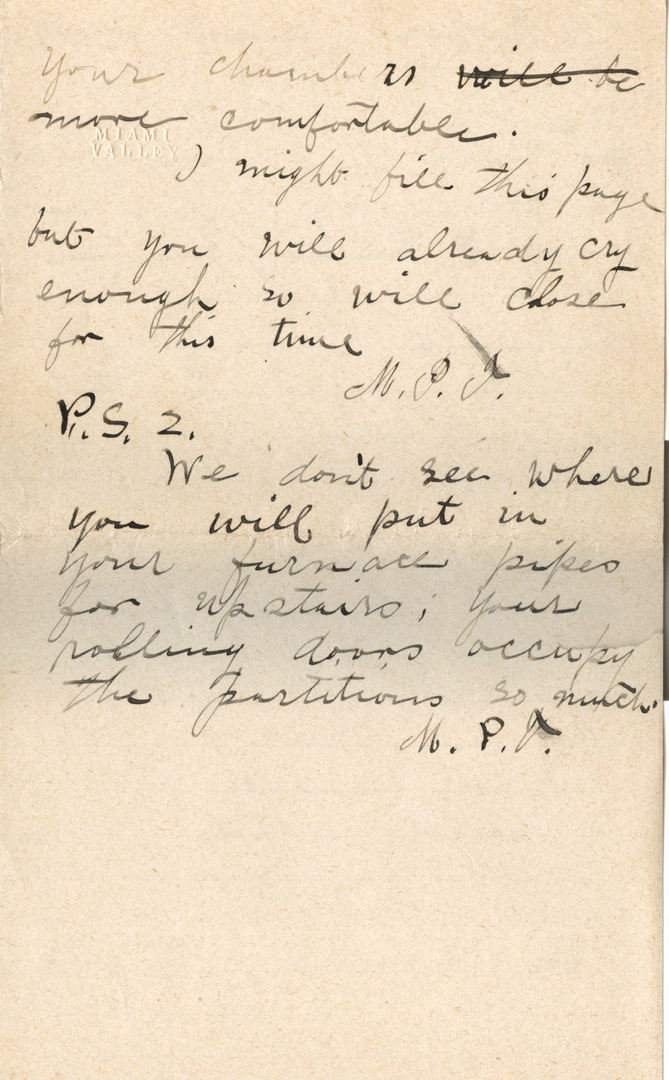 your chambers will be
more comfortable.
MIAMI
VALLEY
I might fill this page
but you will already cry
enough so will close
for this time
M. P. J.
P.S. 2.
We don't see where
you will put in
your furnace pipes
for upstairs; your
rolling doors occupy
the partitions so much.
M. P. J.